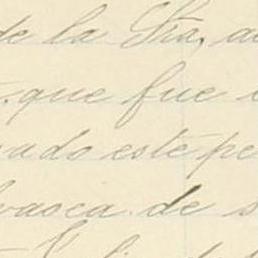 de la Sra. a
que fue
ado este pe
vasca de s